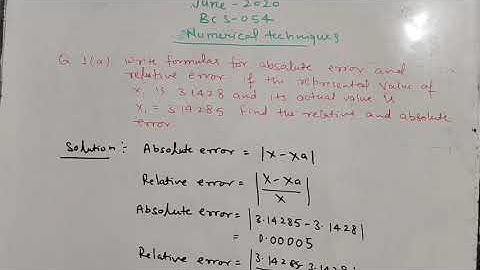 June - 2020
BCS-054
Numerical techniques
Q 1(a) write formulas for absolute error and
relative error. If the represented value of
x, is 3.1428 and its actual value is
x, = 3.14285 Find the relative and absolute
error
Solution :- Absolute error = |x - xa|
Relative error = |x - xa / x|
Absolute error = |3.14285 - 3.1428|
= 0.00005
Relative error = |3.14285 - 3.1428|